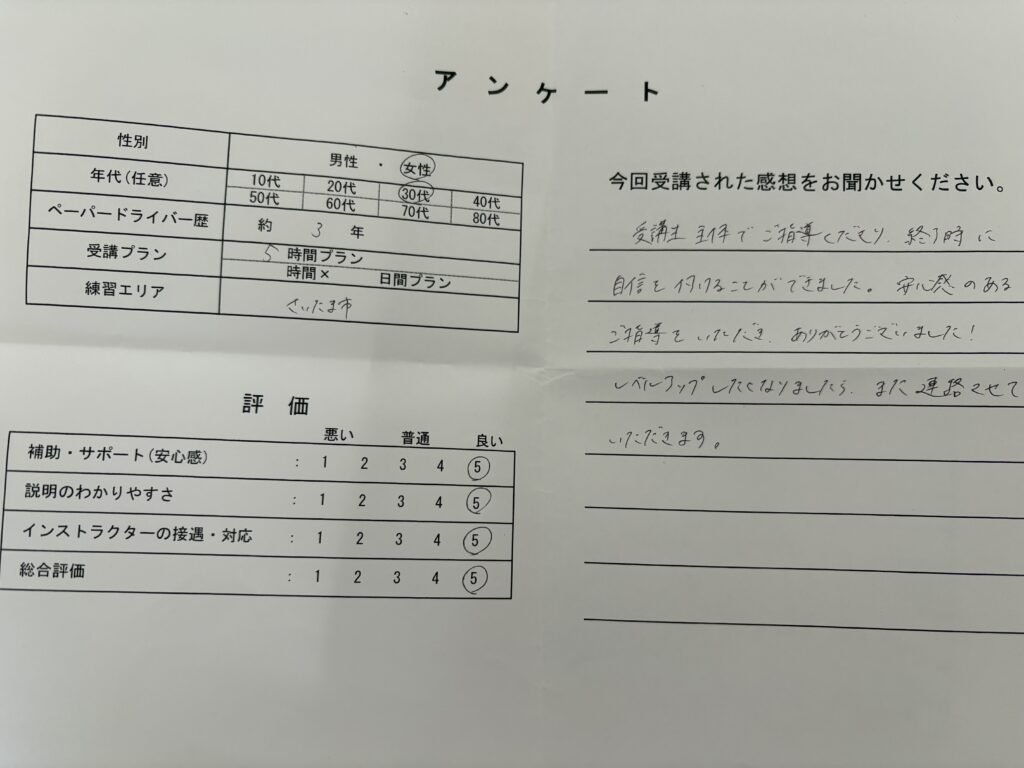 アンケート
性別 男性 ・ 女性
年代(任意) 10代 20代 30代 40代
50代 60代 70代 80代
ペーパードライバー歴 約 3 年
受講プラン 5 時間プラン
時間× 日間プラン
練習エリア さいたま市
評価
悪い 普通 良い
補助・サポート(安心感) : 1 2 3 4 5
説明のわかりやすさ : 1 2 3 4 5
インストラクターの接遇・対応 : 1 2 3 4 5
総合評価 : 1 2 3 4 5
今回受講された感想をお聞かせください。
受講生主体でご指導くださり、終了時に
自信を付けることができました。安心感のある
ご指導をいただき、ありがとうございました!
レベルアップしたくなりましたら、また連絡させて
いただきます。